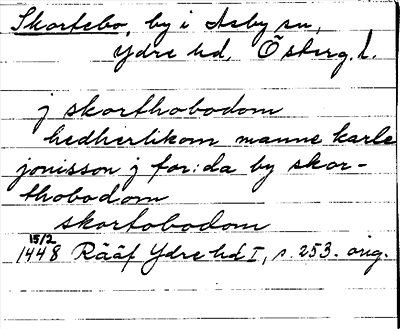 Skortebo, by i Asby sn,
Ydre hd, Österg. l.
j skorthobodom
hedherlikom manne karle
jonisson j for:da by skor-
thobodom
skortobodom
15/2
1448 Rääf Ydre hd I, s. 253. orig.